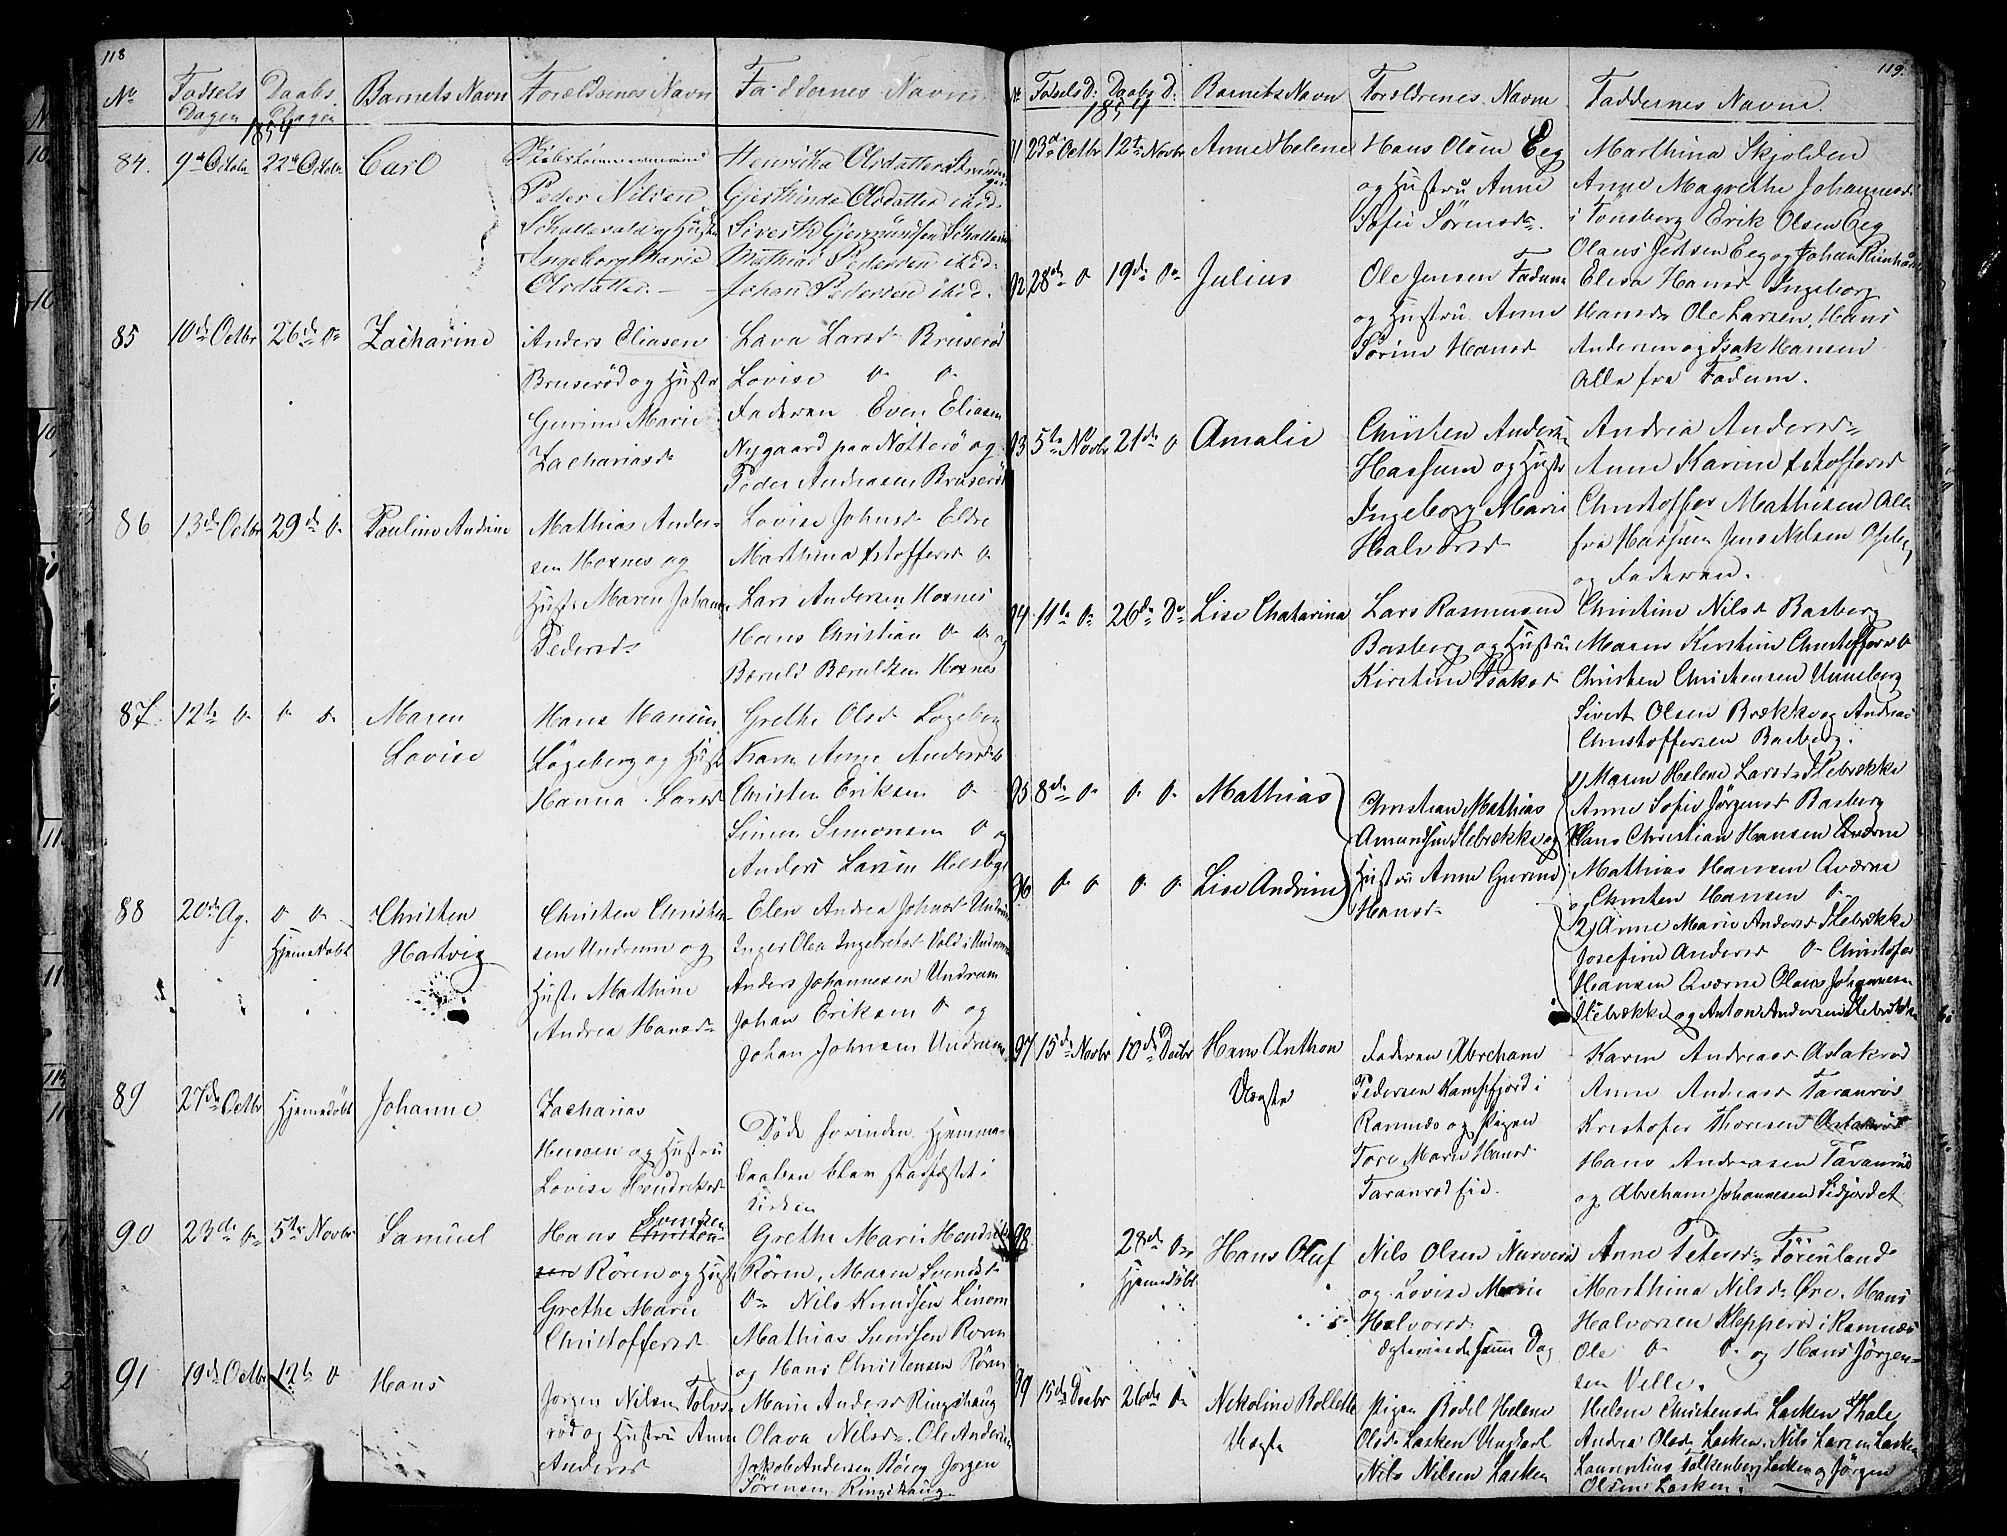 118
No Fødsels Dagen Daabs Dagen Barnets Navn Forældrenes Navn Faddernes Navn
1854
84. 9de Octobr 22de Octobr Carl
Peder Nilsen
og Hustru
Ingeborg Marie
Olsdatter.
Henrikka Olsdatter
Gjerthinde Olsdatter ibid.
Siverth Gjermundsen
Mathias Pedersen ibid.
Johan Pedersen ibid.
85 10de Octbr 26de do Zacharine
Anders Eliasen
Bruserød og Hustr
Gurine Marie
Zachariasdr
Lava Larsdr Bruserød
Lovise do do
Faderen Even Eliasen
Nygaard paa Nøtterø og
Peder Andreasen Bruserød
86 13de Octbr 29de do Pauline Andrine
Mathias Ander-
sen Hoxnes og
Hustr Maren Johanne
Pedersdr
Lovise Johnsdr Eldre
Marthina Kristoffersdr do
Lars Andersen Hoxnes
Hans Christian do do og
Bæruld Bæruldsen Hoxnes
87. 12te do do do Maren
Lovise
Hans Hansen
Løgeberg og Hustr
Hanna Larsdr
Grethe Olsdr Løgeberg
Karen Anne Andersdr
Christen Eriksen do
Simen Simonsen do og
Anders Larsen Hesby
88 20de Ag. do do
Hjemedøbt
Christen
Hartvig
Christen Christen-
sen Undrum og
Hustr Mathine
Andrea Hansdr
Elen Andrea Johnsdr Undrum
Inger Olea Ingebretsdr Vold i Undrum
Anders Johannesen Undrum
Johan Eriksen do og
Johan Johnsen Undrum
89 27de Octbr Hjemmedøbt Johanne
Zacharias
Hansen og Hustru
Lovise Hendriksdr
Døde forinden Hjemme-
daaben blev stadfæstet i
Kirken
90 23de do 5te Novbr Samuel
Svendsen
Hans Christen-
sen Røren og Hustr
Grethe Marie
Christoffersdr
Grethe Marie Hendriksdr
Røren, Maren Svendsdr
do Nils Knudsen Linom
Mathias Svendsen Røren
og Hans Christensen Røren
91 19de Octbr 12te do Hans
Jørgen Nilsen Tolvs-
rød og Hustru Anne
Andersdr
Marie Andersdr Ringshaug
Olava Nilsdr. Ole Andersen
Jakob Andersen Bø og Jørgen
Sørensen Ringshaug
119.
No Fødsels D: Daabs D: Barnets Navn Forældrenes Navn Faddernes Navne.
1854
91 23de Octbr 12te Novbr Anne Helene
Hans Olsen Eeg
og Hustru Anne
Sofie Sørensdr.
Marthina Skjolden
Anne Magrethe Johannesdr
i Tønsberg Erik Olsen Eeg
Olaus Jensen Eeg og Johan
92 28de do 19de do Julius
Ole Jensen Fadum
og Hustru Anne
Sørine Hansdr
Elisa Hansdr Ingeborg
Hansdr Ole Larsen, Hans
Andersen og Isak Hansen
Alle fra Fadum.
93 5te Novbr 21de do Amalie
Christen Anders-
Hassum og Hustr
Ingeborg Marie
Halvorsdr
Andrea Andersdr
Anne Karine Kristoffersdr
Christoffer Mathisen Alle
fra Hassum Jens Nilsen Oseberg
og Faderen.
94 11te do 26de Do Lise Chatarina
Lars Rasmusen
Basberg og Hustru
Kirstine Isaksdr
Christine Nilsdr Basberg
Maren Kirstine Christoffersdr do
Christen Christensen Unneberg
Sivert Olsen Brække og Andreas
Christoffersen Basberg.
95 8de do do do Mathias
96 do do do do Lise Andrine
Christian Mathias
Amundsen Ilebrække og
Hustru Anne Gurine
Hansdr
1) Maren Helene Larsdr Ilebrække
Anne Sofie Jørgensdr Basberg
Hans Christian Hansen Qværne
Mathias Hansen Qværne
og Christen Hansen do
2) Anne Marie Andersdr Ilebrække
Josefine Andersdr do Christofer
Hansen Qværne Olaus Johannesen
Ilebrække og Anton Andersen Ilebrække
97 15de Novbr 10de Decbr Hans Anthon
Uægte
Faderen Abraham
Pedersen Kampfjord i
Ramnæs og Pigen
Tore Marie Hansdr
Taranrød Eie.
Karen Andreasdr Aslakrød
Anne Andreasdr Taranrød
Kristofer Thoresen Aslakrød
Hans Andreasen Taranrød
og Abraham Johannesen Sidjordet
98. 28de do
Hjemmedøbt
Hans Oluf
Nils Olsen Narverød
og Lovise Marie
Halvorsdr
Ægteviede samme Dag
Anne Petersdr Førenland
Marthina Nilsdr Øre, Hans
Halvorsen Klepperød i Ramnæs
Ole do do og Hans Jørgen-
sen Velle.
99 15de Decbr 26de do Nikoline Bollette
Uægte
Pigen Bodel Helene
Olsdr Lasken Ungkarl
Nils Nilsen Lasken
Helene Christensdr Lasken Thale
Andrea Olsdr Lasken, Nils Larsen Lasken
Laurentius Falkenberg Lasken og Jørgen
Olsen Lasken.